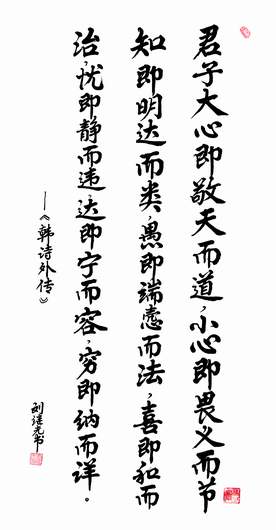 君子大心即敬天而道,小心即畏义而节
知即明达而类,愚即端悫而法,喜即和而
治,忧即静而违,达即宁而容,穷即纳而详。
——《韩诗外传》
刘继光书